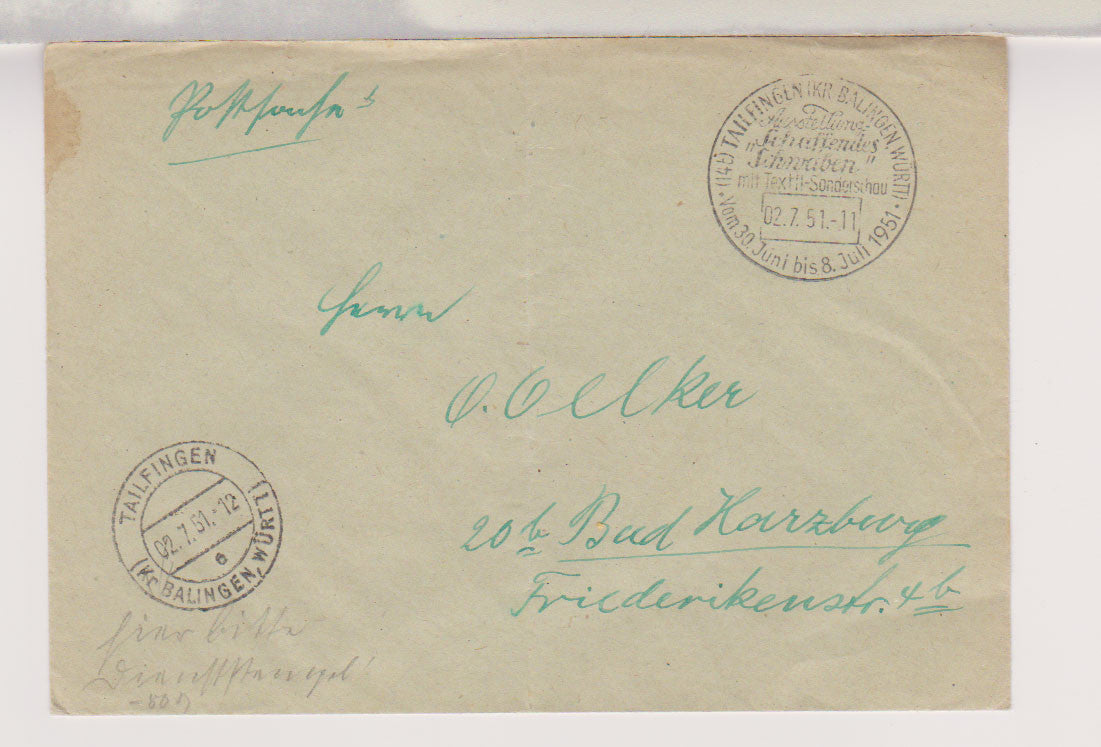 Postsache!
(14b) TAILFINGEN (KR BALINGEN, WÜRTT)
Ausstellung
„Schaffendes
Schwaben"
mit Textil-Sonderschau
02.7.51.-11
Vom 30. Juni bis 8. Juli 1951
Herrn
O. Oelker
20b Bad Harzburg
Friederikenstr. 4b
TAILFINGEN
02.7.51.-12
e
(Kr BALINGEN, WÜRTT)
hier bitte
Dienststempel!